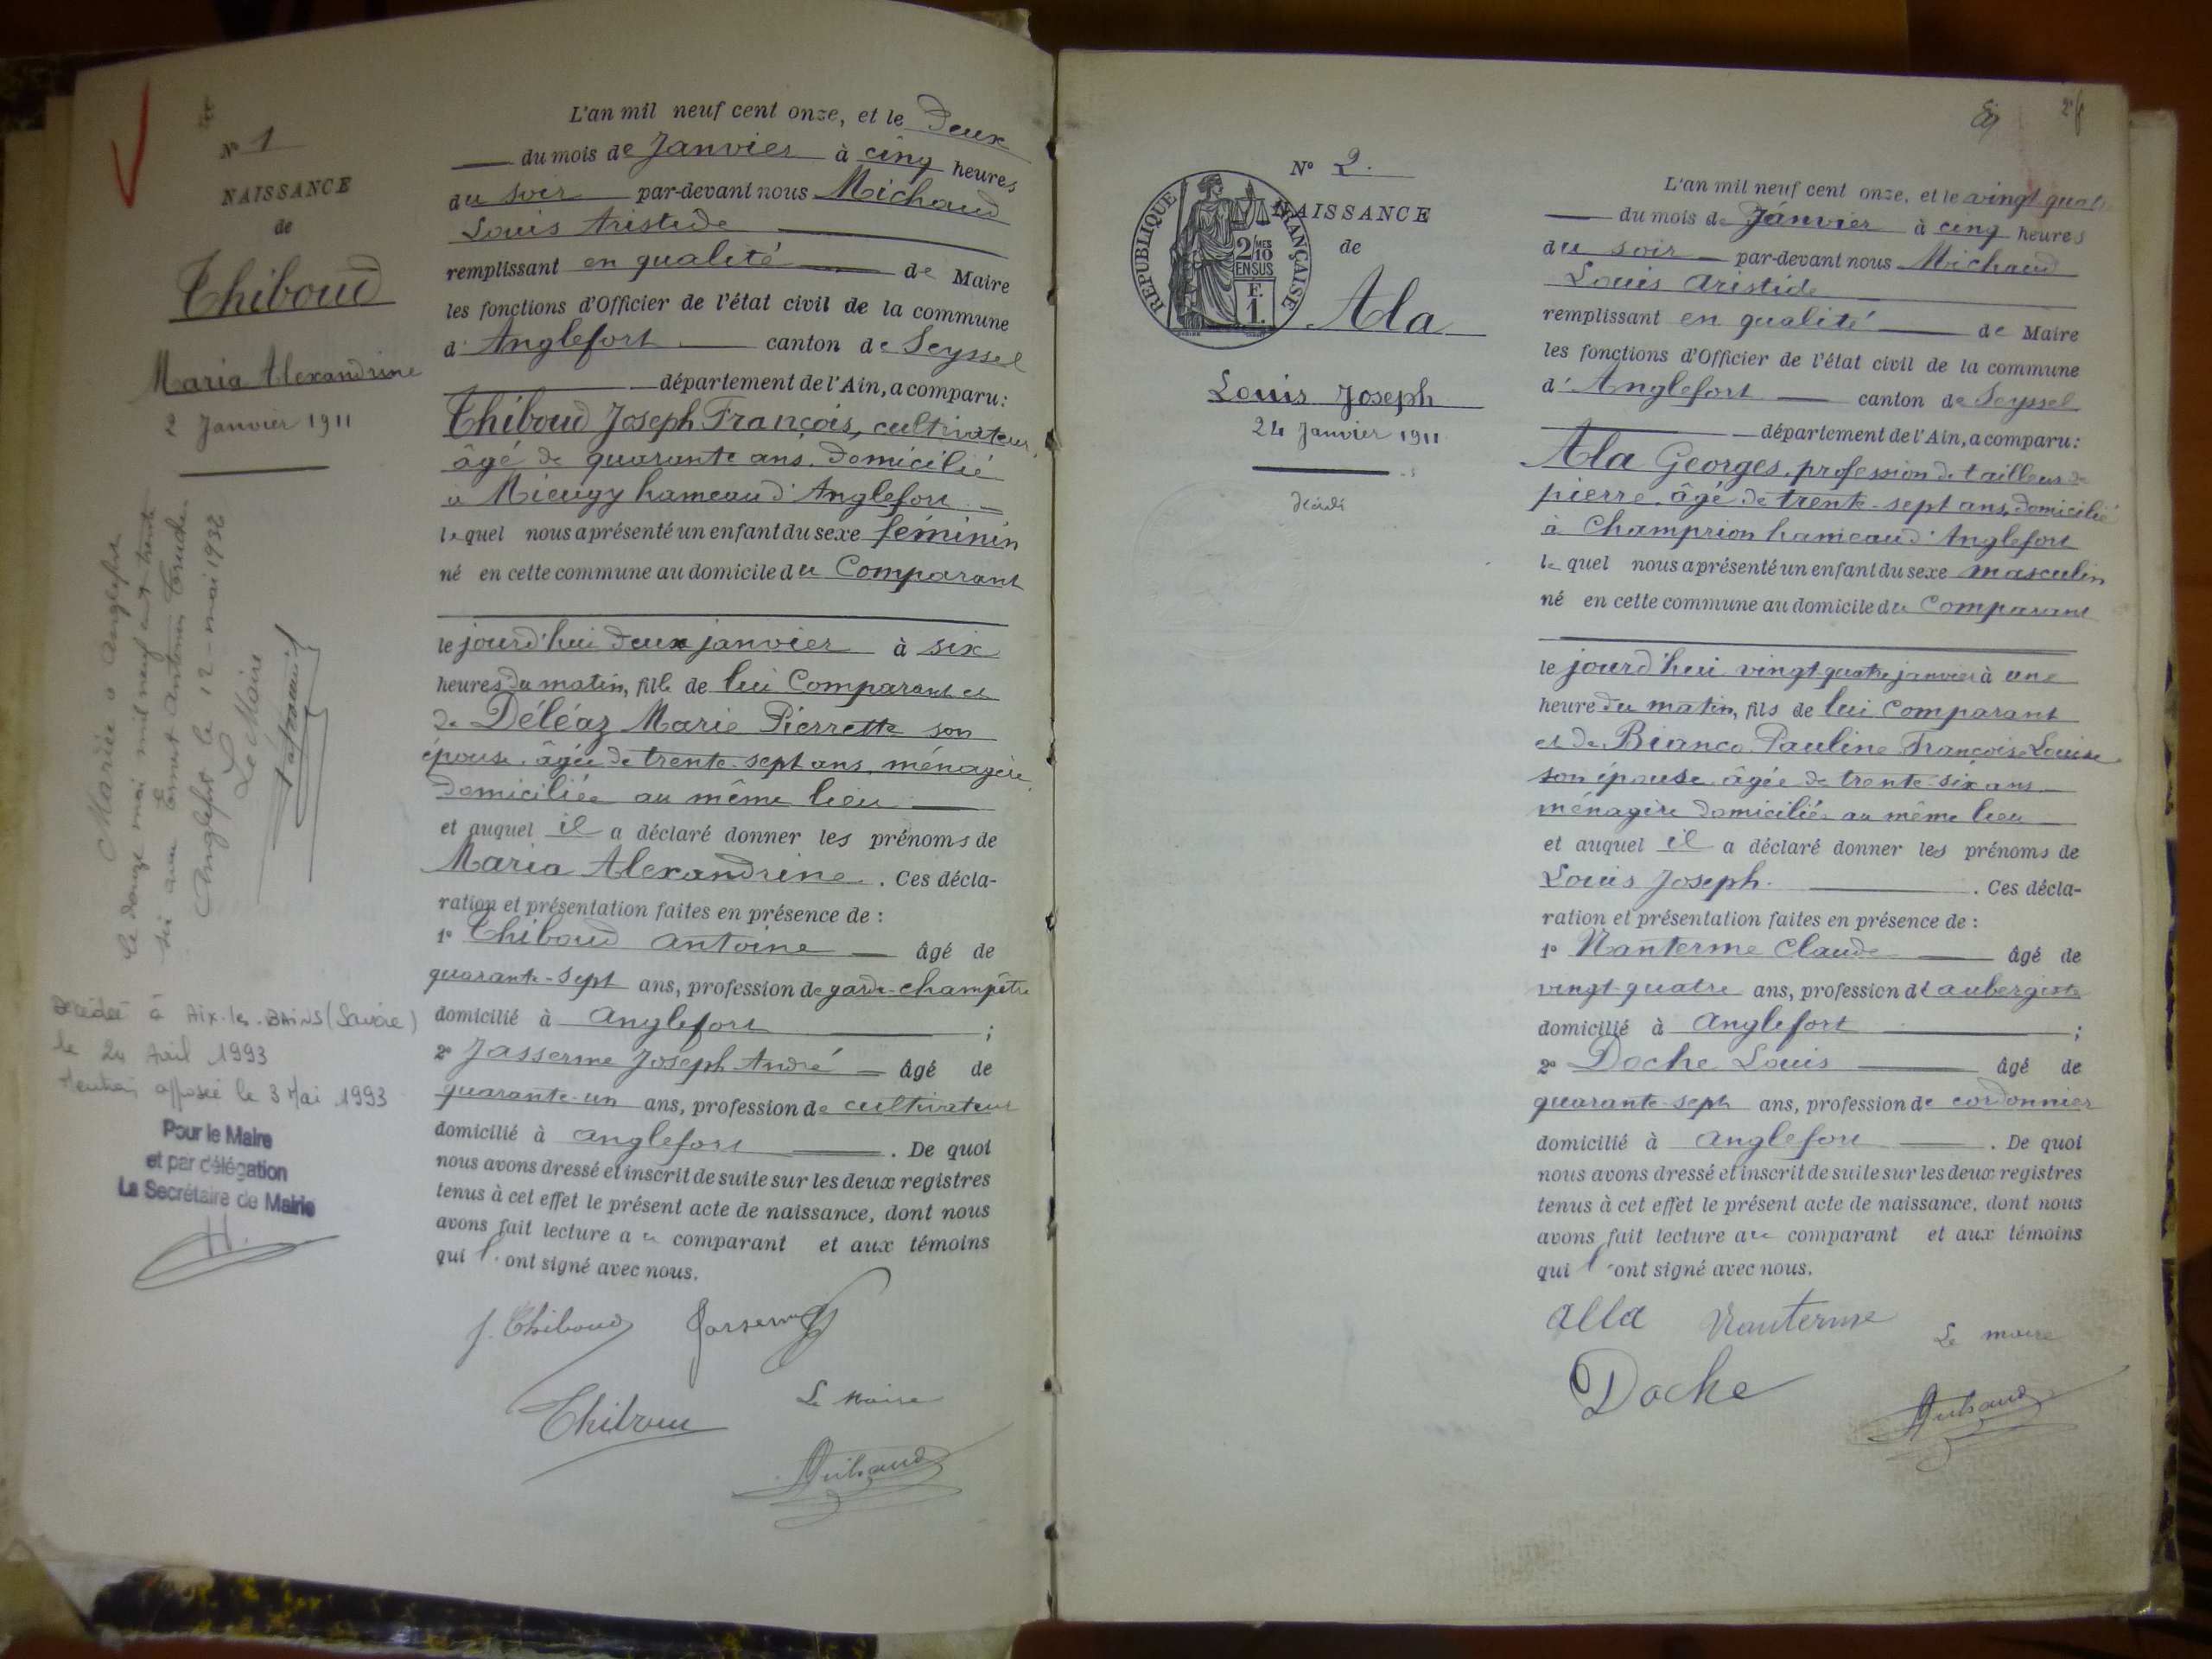 N° 1
NAISSANCE
de
Thiboud
Maria Alexandrine
2 Janvier 1911
Mariée à Anglefort
le douze mai mil neuf cent trente
six avec Ernest Antonin
Anglefort le 12 - mai 1936
Le Maire
Décédée à Aix-les-BAiNS (Savoie)
le 24 Avril 1993
Mention apposée le 3 Mai 1993
Pour le Maire
et par délégation
La Secrétaire de Mairie
L'an mil neuf cent onze, et le Deux
du mois de Janvier à cinq heures
du soir par-devant nous Michaud
Louis Aristide
remplissant en qualité de Maire
les fonctions d'Officier de l'état civil de la commune
d'Anglefort canton de Seyssel
département de l'Ain, a comparu :
Thiboud Joseph François, cultivateur,
âgé de quarante ans, domicilié
à Mieugy hameau d'Anglefort
lequel nous a présenté un enfant du sexe féminin
né en cette commune au domicile du Comparant
le jourd'hui deux janvier à six
heures du matin, fille de lui Comparant et
de Déléaz Marie Pierrette son
épouse, âgée de trente-sept ans, ménagère,
domiciliée au même lieu
et auquel il a déclaré donner les prénoms de
Maria Alexandrine. Ces décla-
ration et présentation faites en présence de :
1° Thiboud Antoine âgé de
quarante-sept ans, profession de garde-champêtre
domicilié à Anglefort ;
2° Jasserme Joseph André âgé de
quarante-un ans, profession de cultivateur
domicilié à Anglefort. De quoi
nous avons dressé et inscrit de suite sur les deux registres
tenus à cet effet le présent acte de naissance, dont nous
avons fait lecture au comparant et aux témoins
qui l'ont signé avec nous.
J. Thiboud Jasserme
Thiboud
Le Maire
Michaud
N° 2.
NAISSANCE
de
Ala
Louis Joseph
24 Janvier 1911
RÉPUBLIQUE FRANÇAISE
2/MES
10
EN SUS
F.
1.
L'an mil neuf cent onze, et le vingt quatre
du mois de Janvier à cinq heures
du soir par-devant nous Michaud
Louis Aristide
remplissant en qualité de Maire
les fonctions d'Officier de l'état civil de la commune
d'Anglefort canton de Seyssel
département de l'Ain, a comparu :
Ala Georges, profession de tailleur de
pierre, âgé de trente-sept ans, domicilié
à Champrion hameau d'Anglefort
lequel nous a présenté un enfant du sexe masculin
né en cette commune au domicile du Comparant
le jourd'hui vingt-quatre janvier à une
heure du matin, fils de lui Comparant
et de Bianco Pauline Françoise Louise
son épouse, âgée de trente-six ans
ménagère domiciliée au même lieu
et auquel il a déclaré donner les prénoms de
Louis Joseph. Ces décla-
ration et présentation faites en présence de :
1° Nanterme Claude âgé de
vingt-quatre ans, profession d'aubergiste
domicilié à Anglefort ;
2° Doche Louis âgé de
quarante-sept ans, profession de cordonnier
domicilié à Anglefort. De quoi
nous avons dressé et inscrit de suite sur les deux registres
tenus à cet effet le présent acte de naissance, dont nous
avons fait lecture au comparant et aux témoins
qui l'ont signé avec nous.
alla Nanterme Le maire
Doche
Michaud